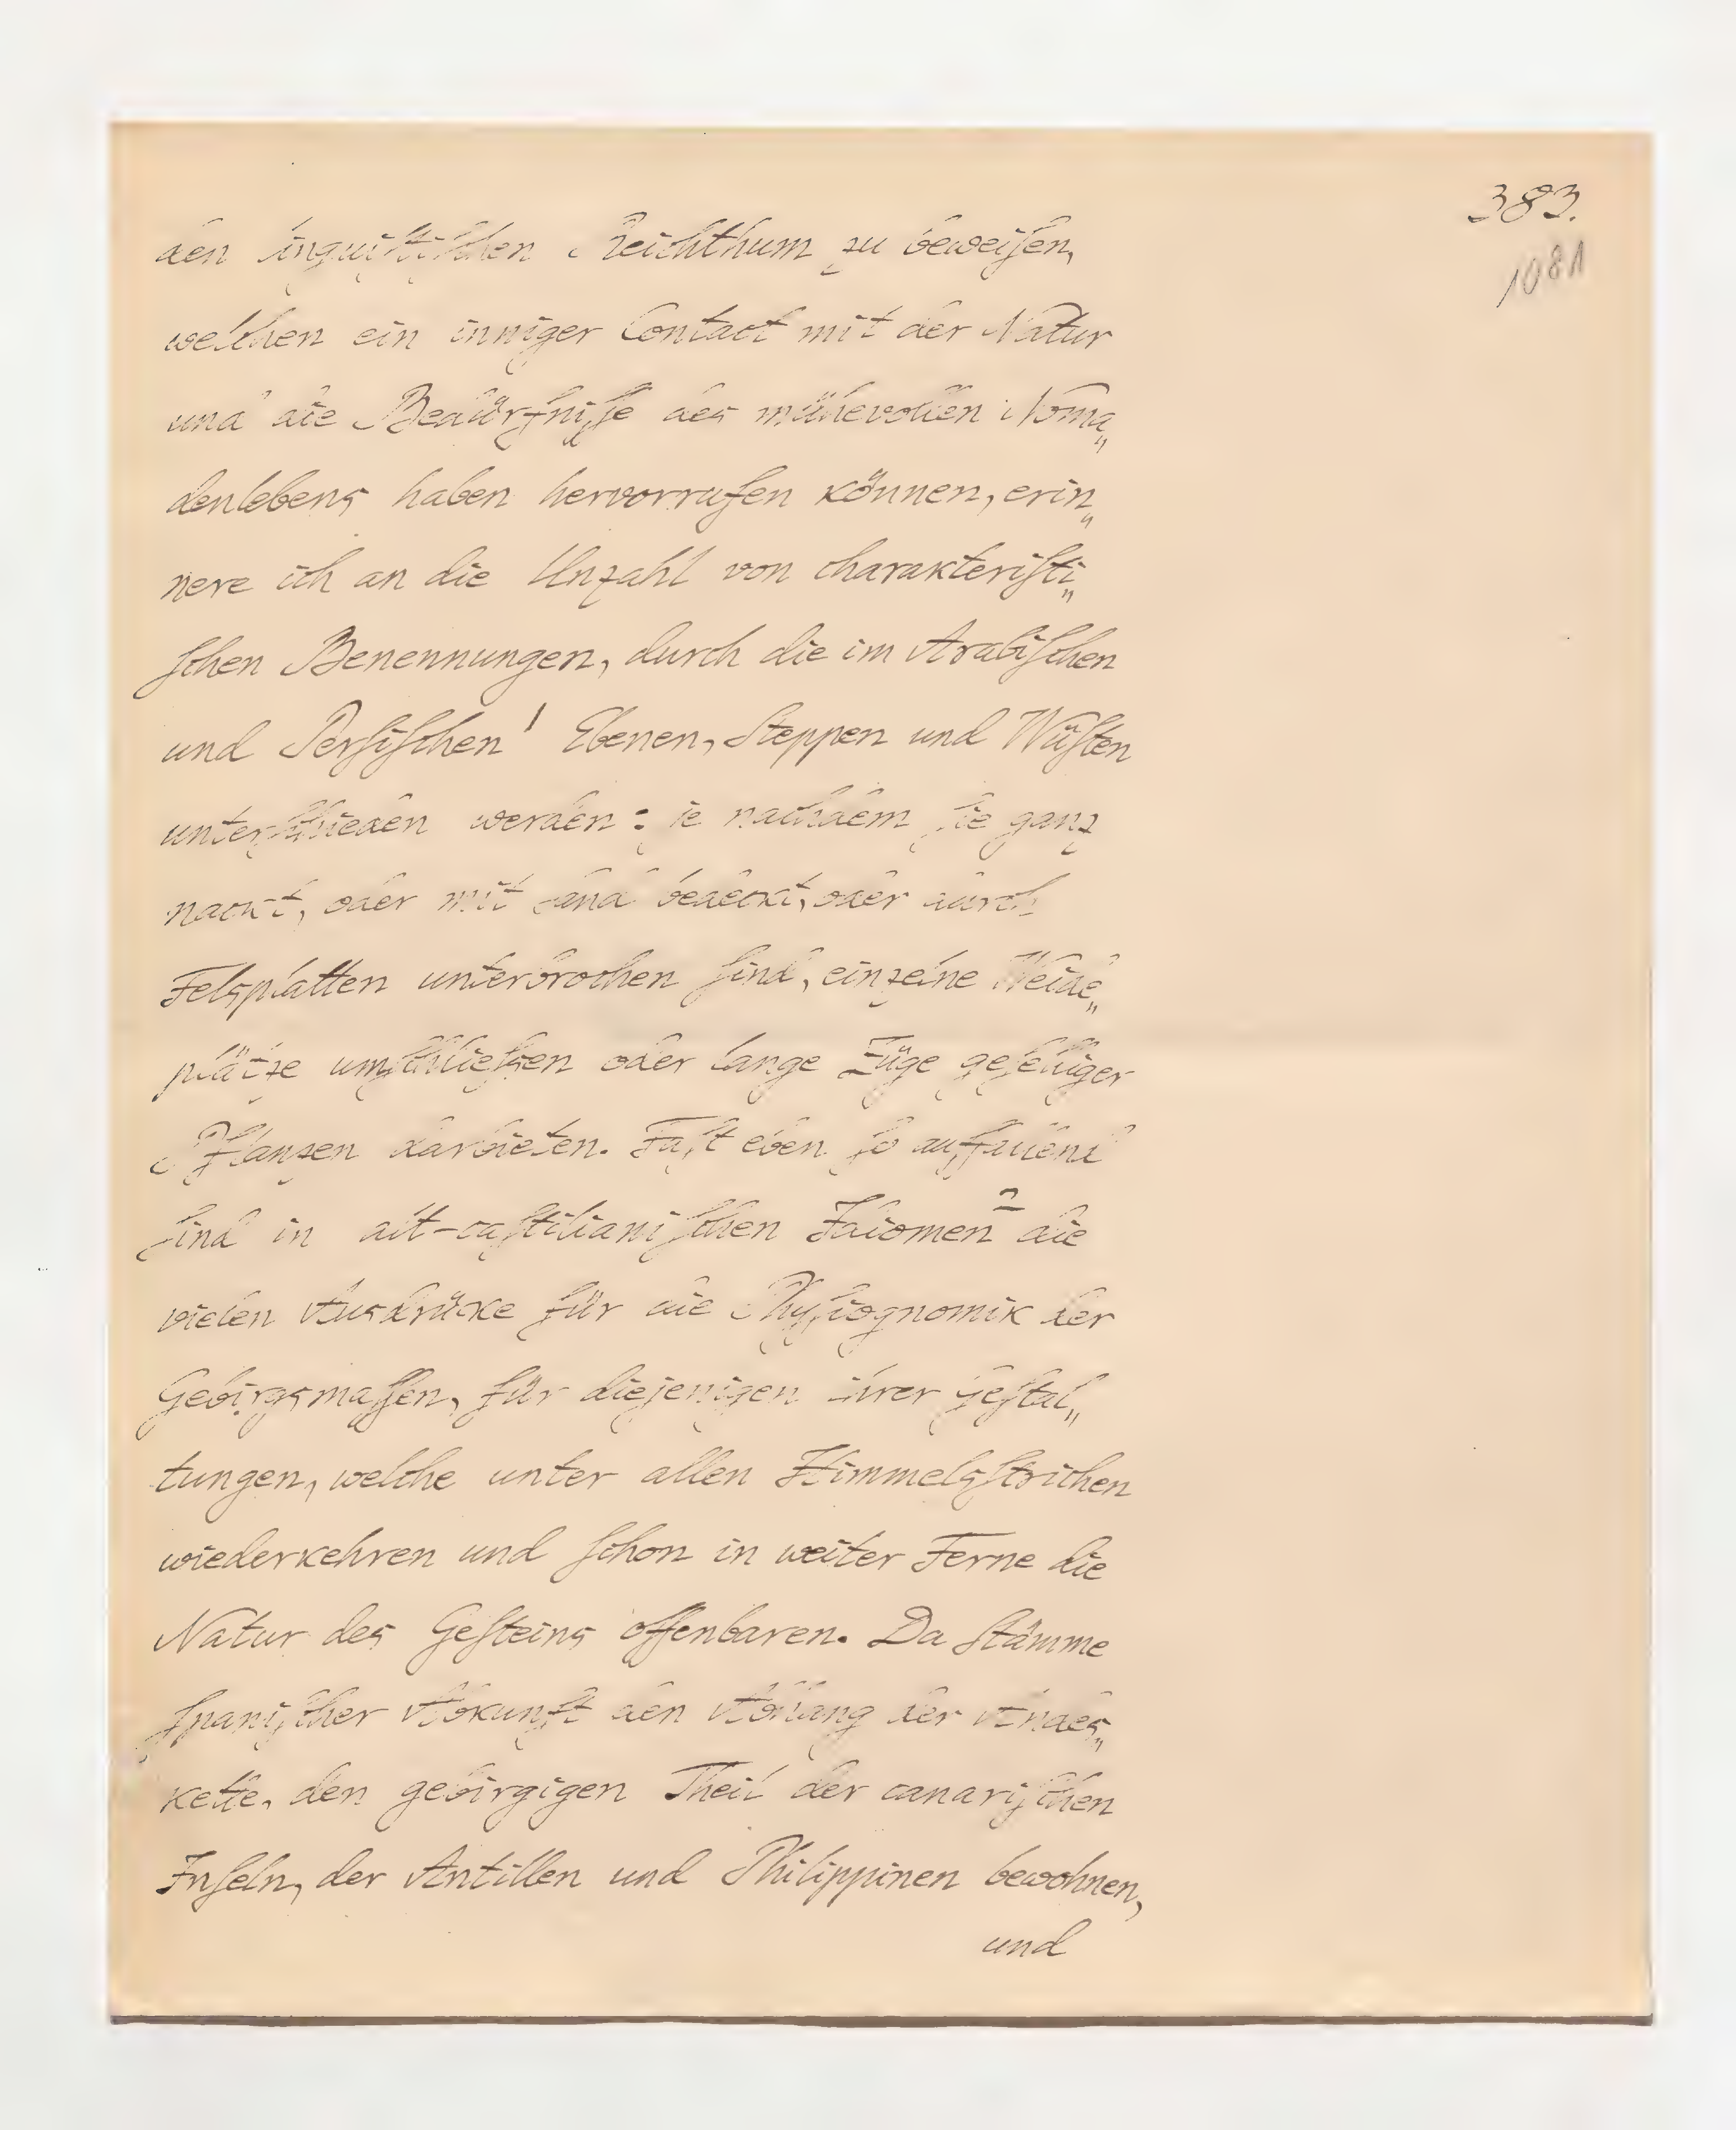 383.
1081
den linguistischen Reichthum zu beweisen,
welchen ein inniger Contact mit der Natur
und die Bedürfnisse des mühevollen Noma„
denlebens haben hervorrufen können, erin„
nere ich an die Unzahl von charakteristi„
schen Benennungen, durch die im Arabischen
und Persischen 1 Ebenen, Steppen und Wüsten
unterschieden werden: je nachdem sie ganz
nackt, oder mit Sand bedeckt, oder durch
Felsplatten unterbrochen sind, einzelne Weide„
plätze umschliessen oder lange Züge geselliger
Pflanzen darbieten. Fast eben so auffallend
sind in alt-castilianischen Idiomen 2 die
vielen Ausdrücke für die Physiognomik der
Gebirgsmassen, für diejenigen ihrer Gestal„
tungen, welche unter allen Himmelsstrichen
wiederkehren und schon in weiter Ferne die
Natur des Gesteins offenbaren. Da Stämme
spanischer Abkunft den Abhang der Andes„
kette, den gebirgigen Theil der canarischen
Inseln, der Antillen und Philippinen bewohnen,
und